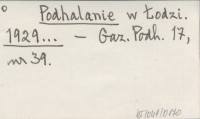 Podhalanie w Łodzi.
1929... — Gaz. Podh. 17,
nr 39.